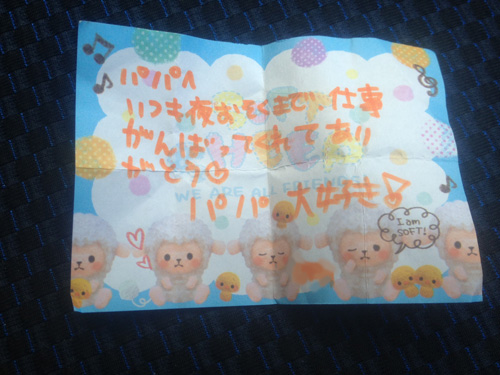 パパへ
いつも夜おそくまで仕事
がんばってくれてあり
がとう
パパ大好き!
WE ARE ALL FRIENDS
I am
SOFT!